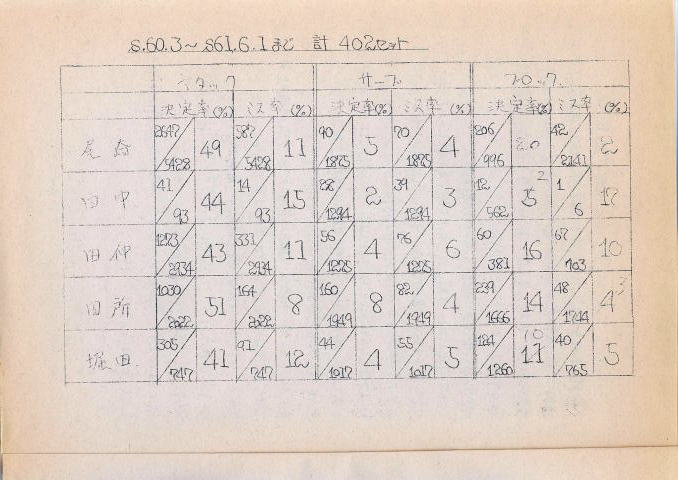 S.60.3～S61.6.1まで 計 402セット
アタック サーブ ブロック
決定率(%) ミス率 (%) 決定率(%) ミス率 (%) 決定率(%) ミス率 (%)
尾崎 2647/5428 49 587/5428 11 90/1875 5 70/1875 4 206/996 20 42/2141 2
田中 41/93 44 14/93 15 28/1294 2 39/1294 3 12/562 2 1/6 17
田仲 1273/2934 43 331/2934 11 56/1225 4 76/1225 6 60/381 16 67/703 10
田所 1030/2022 51 164/2022 8 160/1949 8 82/1949 4 239/1666 14 48/1744 3
堀田 305/747 41 91/747 12 44/1017 4 55/1017 5 184/1260 11 10 40/765 5